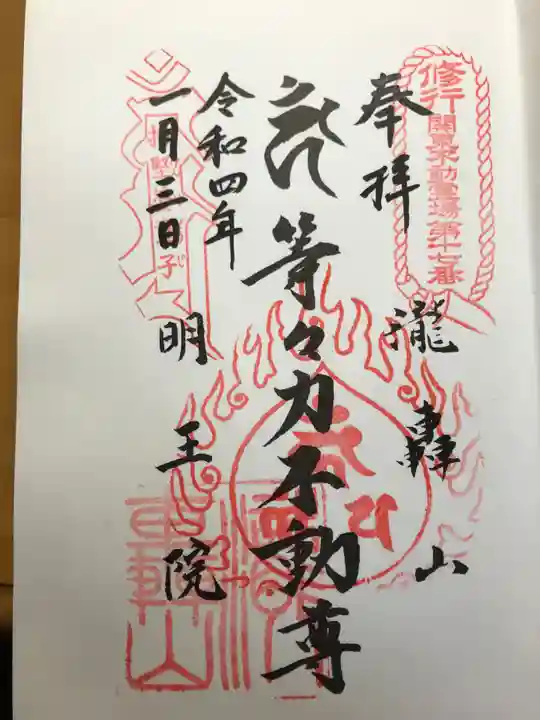 修行 関東不動霊場 第十七番
奉拝
瀧轟山
等々力不動尊
令和四年
一月三日
明王院